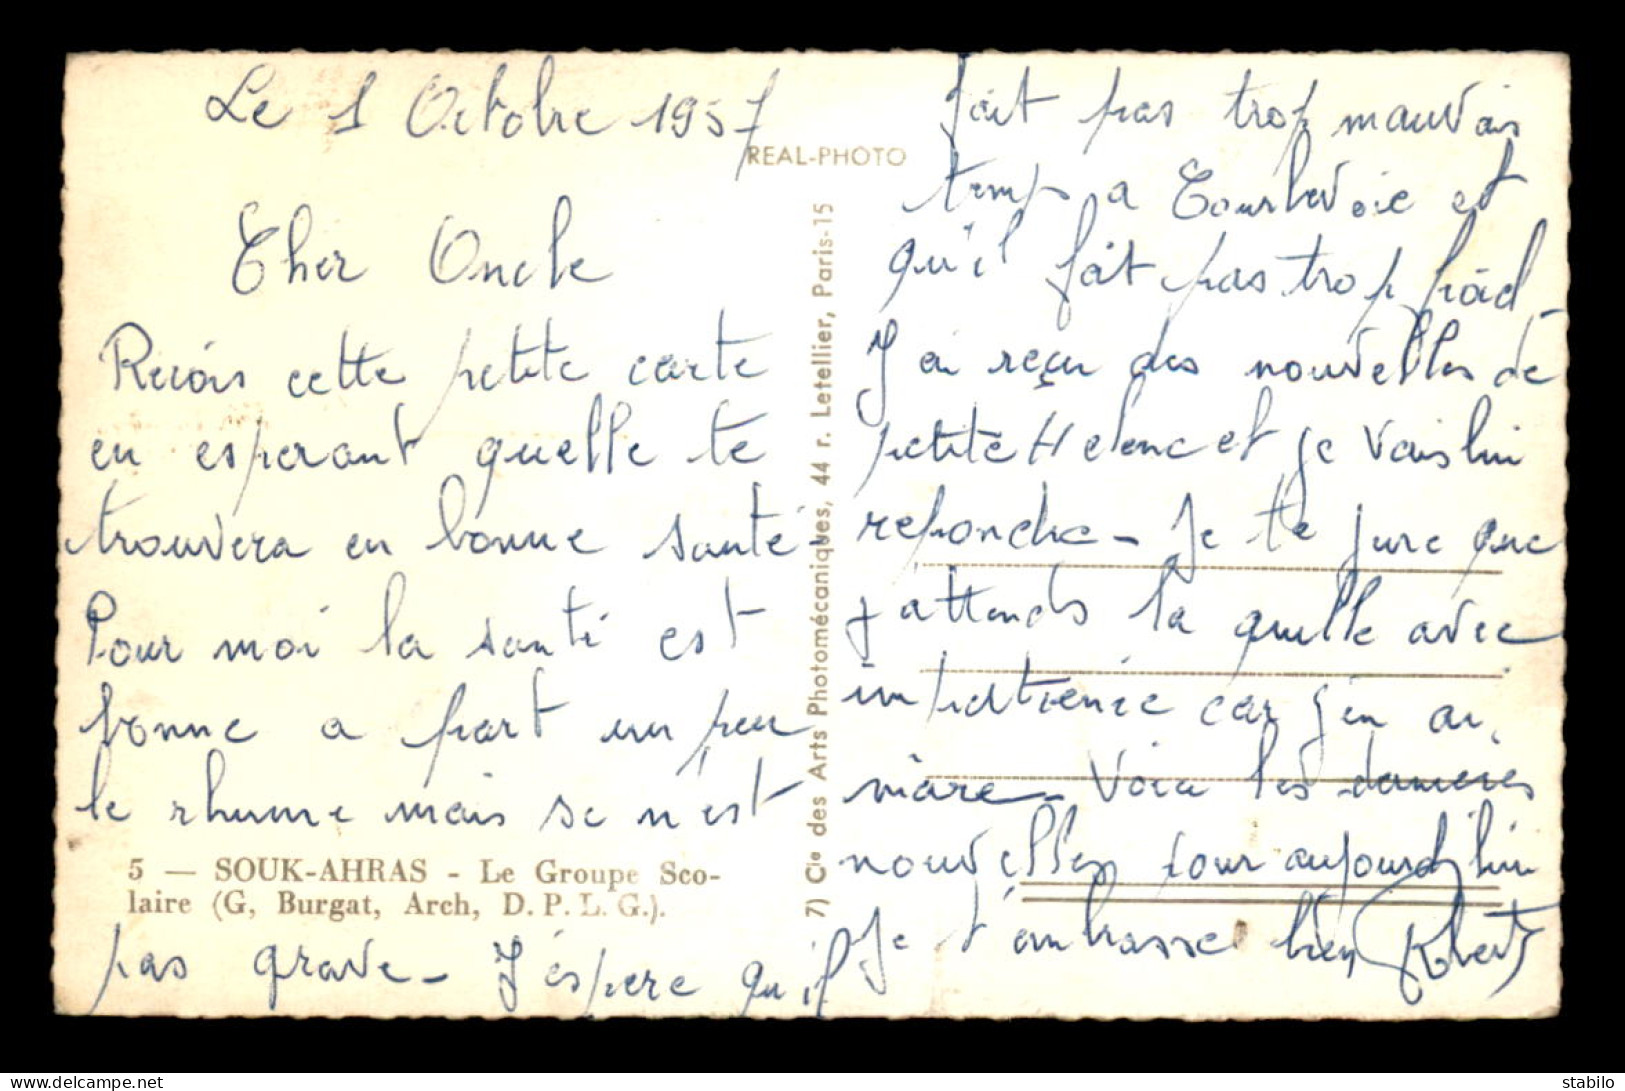 Le 1 Octobre 1957
Cher Oncle
Recois cette petite carte
en esperant quelle te
trouvera en bonne santé
Pour moi la santé est
bonne a part un peu
le rhume mais se n'est
5 — SOUK-AHRAS - Le Groupe Sco-
laire (G, Burgat, Arch, D. P. L. G.).
pas grave - J'éspere qu'il
REAL-PHOTO
7) Cie des Arts Photomécaniques, 44 r. Letellier, Paris-15
fait pas trop mauvais
temps a Courbevoie et
qu'il fait pas trop froid -
J'ai reçu des nouvelles de
petite Helene et je vais lui
repondre - Je te jure que
j'attends la quille avec
impatience car j'en ai
mare - Voici les dernieres
nouvelles pour aujourd'hui
Je t'embrasse bien Robert
stabilo